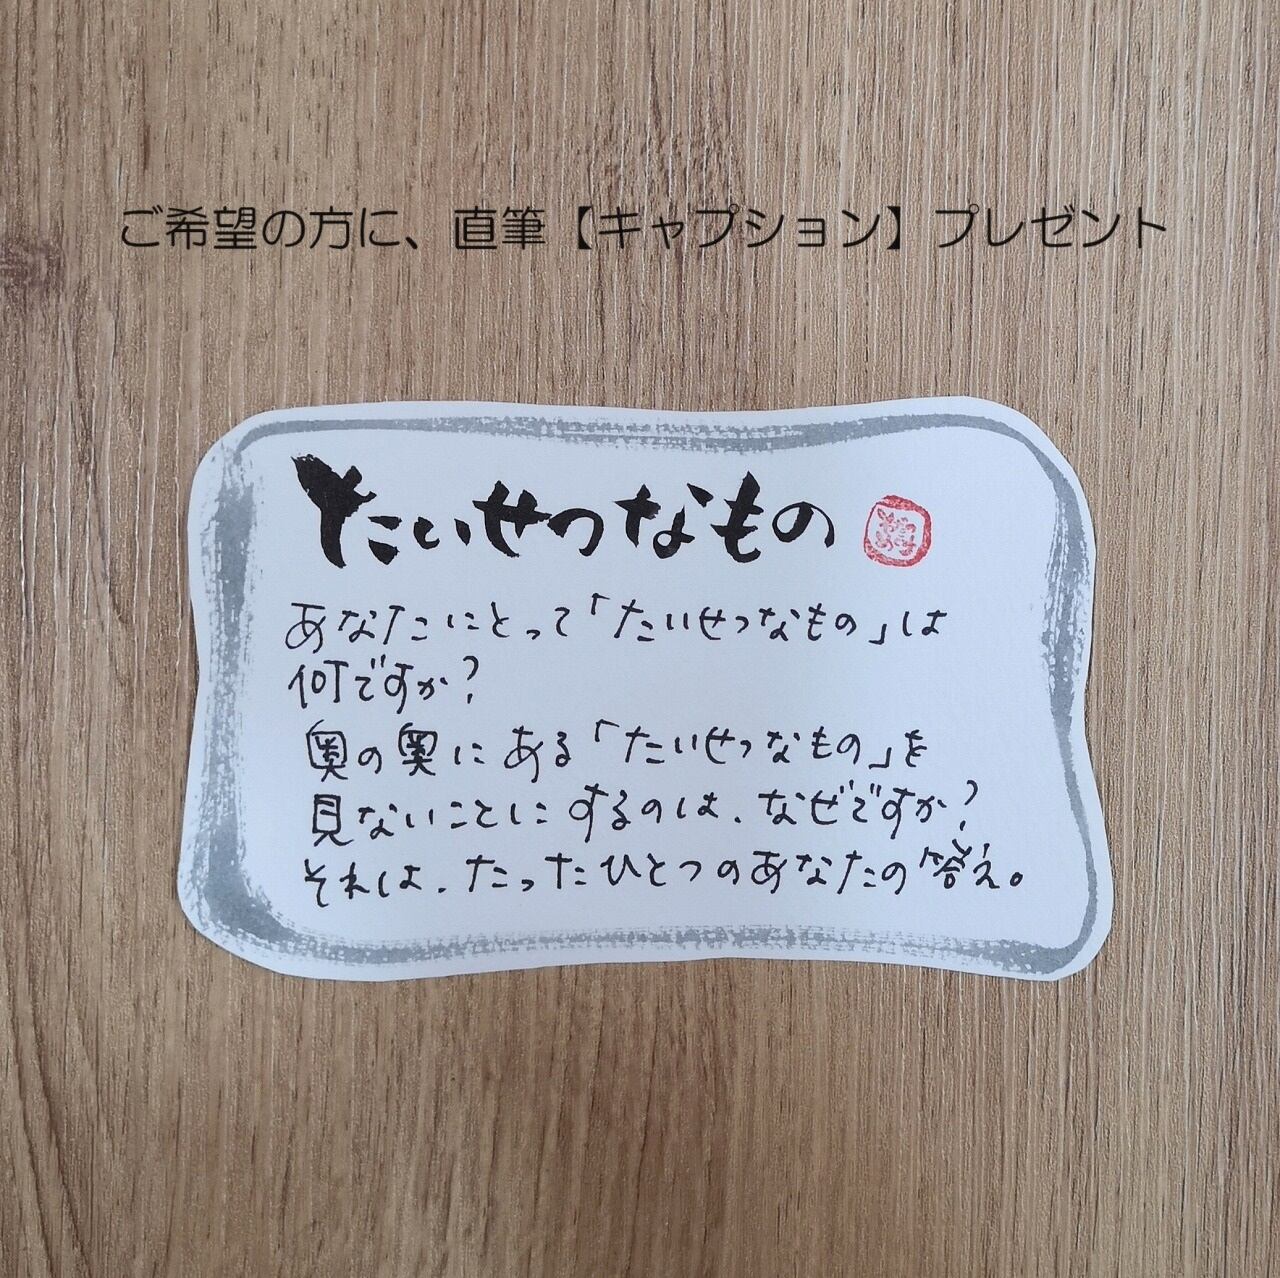 ご希望の方に、直筆【キャプション】プレゼント
たいせつなもの
あなたにとって「たいせつなもの」は
何ですか?
奥の奥にある「たいせつなもの」を
見ないことにするのは、なぜですか?
それは、たったひとつのあなたの答え。